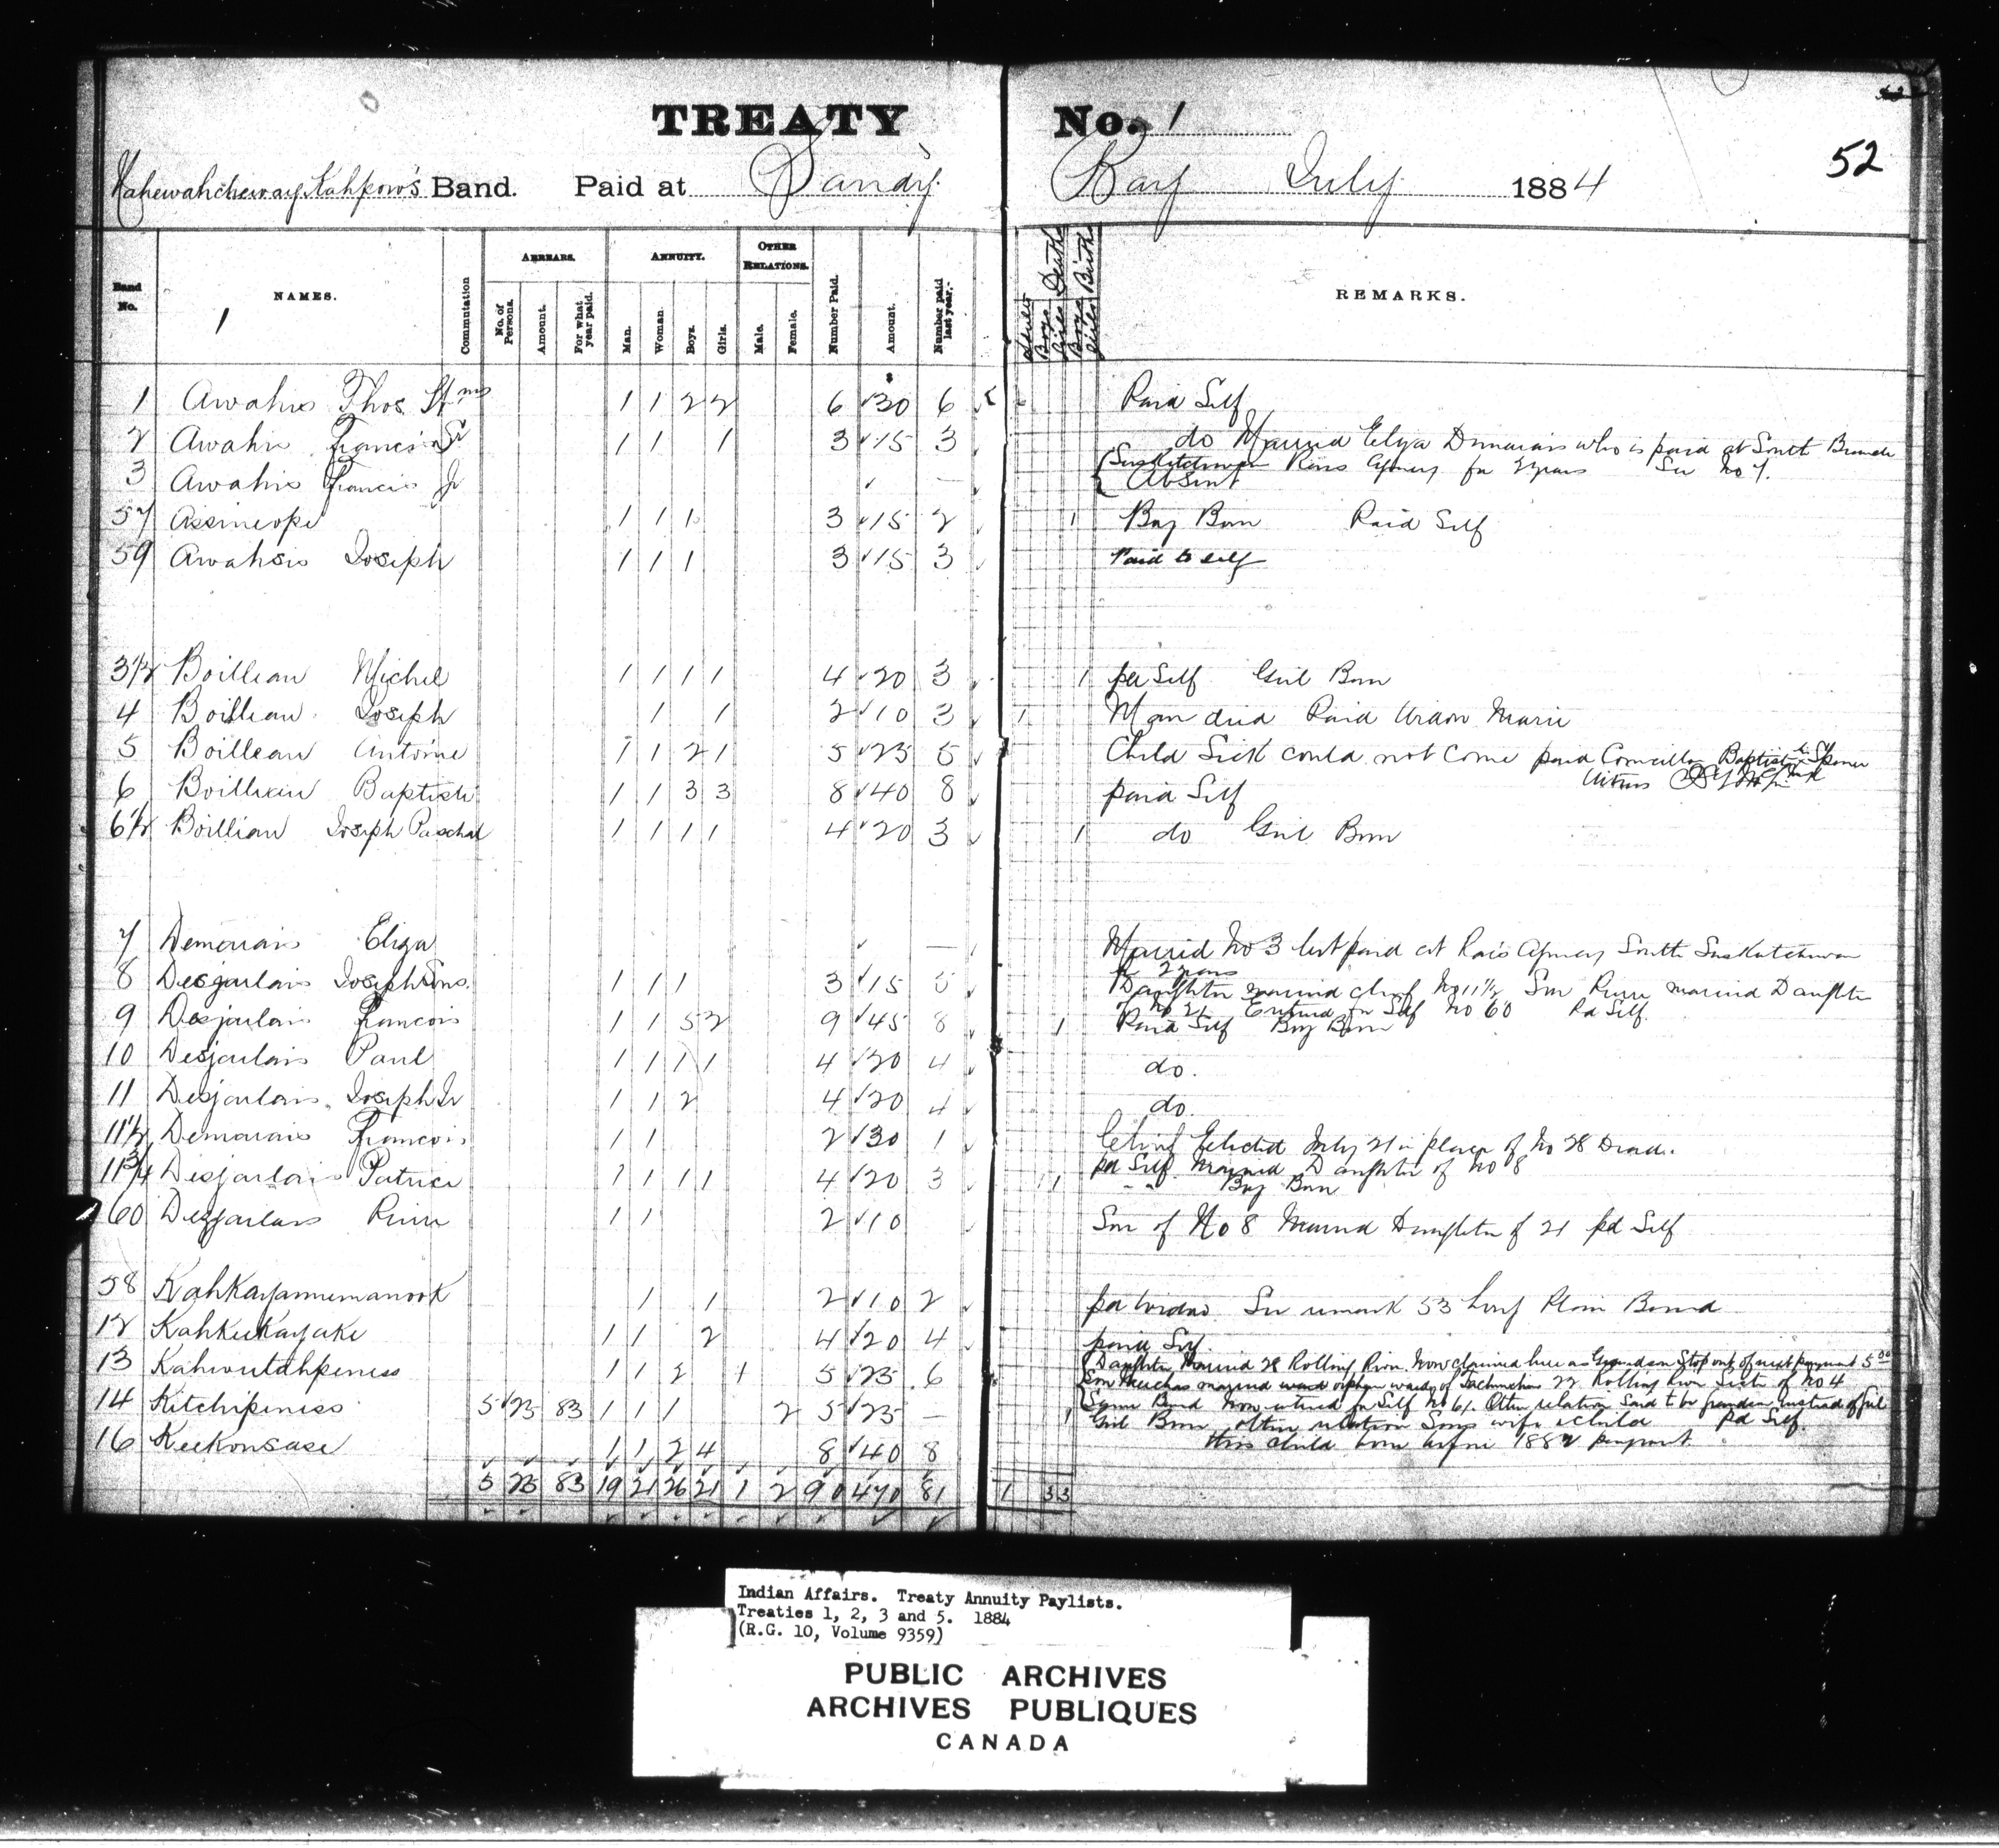 TREATY No. 1
52
Band. Paid at Sandy Bay July 1884
Band No. NAMES. Commutation ARREARS. No. of Persons. Amount. For what year paid. ANNUITY. Man. Woman Boys. Girls. OTHER RELATIONS. Male. Female. Number Paid. Amount. Number paid last year. Deaths Boys Girls Births Boys Girls REMARKS.
1
1 Awahis Thos 1 1 2 2 6 $30 6 Paid Self
2 Awahis Francis Sr 1 1 1 3 15 3 do Married Eliza Demarais who is paid at South Branch
3 Awahis Francis Jr — Saskatchewan Rais Agency for 2 years See No 7.
Absent
57 Assineope 1 1 1 3 15 2 1 Boy Born Paid Self
59 Awahsis Joseph 1 1 1 3 15 3 Paid to self
3 1/2 Boilleau Michel 1 1 1 1 4 20 3 1 pd Self Girl Born
4 Boilleau Joseph 1 1 2 10 3 1 Man died Paid Widow Marie
5 Boilleau Antoine 1 1 2 1 5 25 5 Child Sick could not come paid Councillor Baptiste Spence
Witness
6 Boilleau Baptiste 1 1 3 3 8 40 8 paid Self
6 1/2 Boilleau Joseph Paschal 1 1 1 1 4 20 3 1 do Girl Born
7 Demarais Eliza — Married No 3 last paid at Rais Agency South Saskatchewan
for 2 years
8 Desjarlais Joseph Sens. 1 1 1 3 15 5 Daughter married chief No 11 1/2 Son Pierre married Daughter
of No 21 Entered for Self No 60 Pd Self.
9 Desjarlais Francois 1 1 5 2 9 45 8 1 Paid Self Boy Born
10 Desjarlais Paul 1 1 1 1 4 20 4 do.
11 Desjarlais Joseph Jr 1 1 2 4 20 4 do.
11 1/2 Demarais Francois 1 1 2 30 1 Chief Elected July 21 in place of No 28 Dead.
pd Self Married Daughter of No 8
11 3/4 Desjarlais Patrice 1 1 1 1 4 20 3 1 1 " " Boy Born
60 Desjarlais Pierre 1 1 2 10 Son of No 8 Married Daughter of 21 pd Self
58 Kahkayannemanook 1 1 2 10 2 pd widow See remark 53 Long Plain Band
12 Kahkeekayake 1 1 2 4 20 4 paid Self.
13 Kahwutahpeness 1 1 2 1 5 25 6 Daughter Married 28 Rolling River. Now claimed here as Grandson Stop out of next payment 5 00
Son married orphan ward of 22 Rolling River Sister of No 4
14 Kitchipeness 5 25 83 1 1 1 2 5 25 — Same Band now entered for Self No 61. Other relation Said to be grandson instead of girl
1 Girl Born other relation Sons wife & child Pd Self.
16 Keekonsase 1 1 2 4 8 40 8 this child born before 1882 payment
5 25 83 19 21 26 21 1 2 90 470 81 1 3 3
Indian Affairs. Treaty Annuity Paylists.
Treaties 1, 2, 3 and 5. 1884
(R.G. 10, Volume 9359)
PUBLIC ARCHIVES
ARCHIVES PUBLIQUES
CANADA